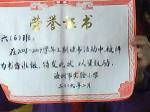 荣誉证书
六(6)班:
在2015-2017学年上期读书活动中,被评
为书香小组,特发此状,以资鼓励。
实验小学
二〇一六年十二月